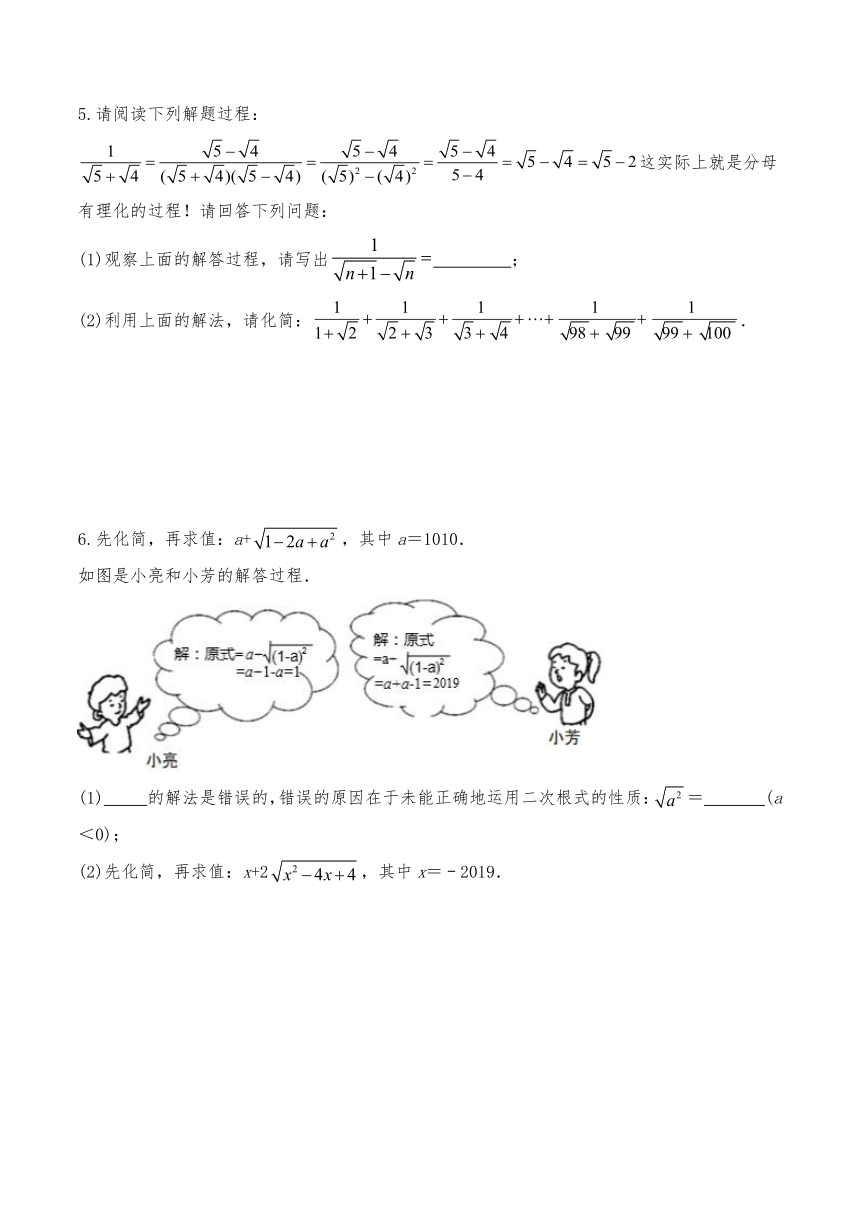 5.请阅读下列解题过程:
1/(√5+√4)=(√5-√4)/((√5+√4)(√5-√4))=(√5-√4)/((√5)²-(√4)²)=(√5-√4)/(5-4)=√5-√4=√5-2这实际上就是分母
有理化的过程!请回答下列问题:
(1)观察上面的解答过程,请写出1/(√(n+1)-√n)=________;
(2)利用上面的解法,请化简:1/(1+√2)+1/(√2+√3)+1/(√3+√4)+···+1/(√98+√99)+1/(√99+√100).
6.先化简,再求值:a+√(1-2a+a²),其中a=1010.
如图是小亮和小芳的解答过程.
解:原式=a+√(1-a)²
=a+1-a=1
小亮
解:原式
=a+√(1-a)²
=a+a-1=2019
小芳
(1)____的解法是错误的,错误的原因在于未能正确地运用二次根式的性质:√a²=______(a
<0);
(2)先化简,再求值:x+2√(x²-4x+4),其中x=﹣2019.